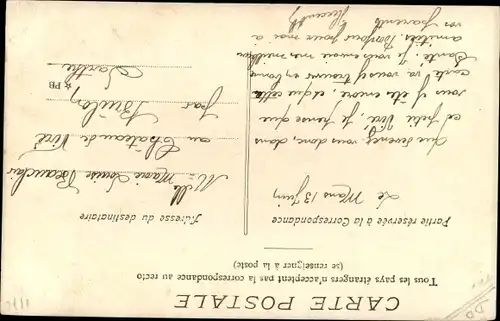 CARTE POSTALE
Tous les pays étrangers n'acceptent pas la correspondance au recto
(se renseigner à la poste)
Partie réservée à la Correspondance
Adresse du destinataire
Le Mans 13 Juin
Que devenez vous donc, dans
ce petit Viré, je pense que
vous y êtes encore, et que cette
carte va vous y trouver en bonne
Santé. Je vous envoie mes meilleures
amitiés. Bonjour pour moi à
vos parents
Mlle Marie Louise Beauclair
au Château de Viré
par Brûlon
Sarthe
☆ PB